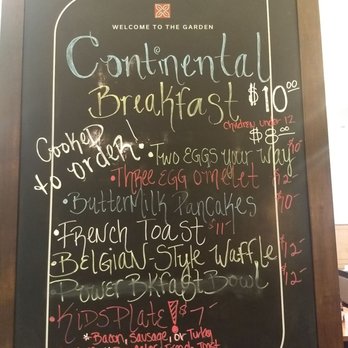 WELCOME TO THE GARDEN
Continental
Breakfast $10.00
Children under 12
$8.00
Cooked to order!
• Two eggs your way 10-
• Three egg omelet 12-
• Buttermilk Pancakes 10-
• French Toast $11-
• Belgian-Style Waffle 12-
Power Bkfast Bowl 12-
• Kids Plate! $7-
*Bacon, Sausage, or Turkey